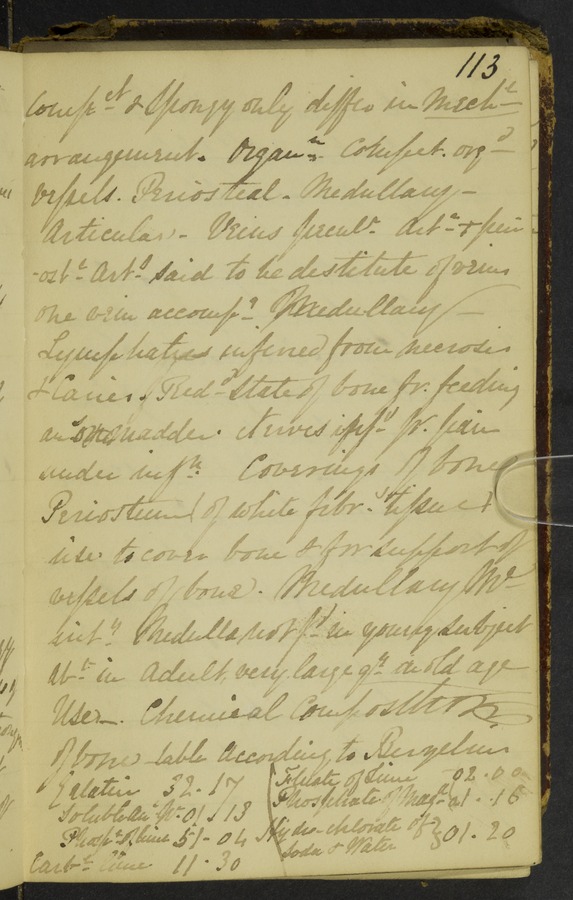 113
Comp^ct & Spongy only differ in Mech^l
arrangement. Organ^n. Compct. org^d
Vessels. Periosteal - Medullary -
Articular - Veins pecul^r. Art^r & peri
-ost^l Art^s said to be destitute of veins
One vein accomp^s Medullary
Lymphatics inferred from necrosis
& Caries. Red^d State of bone fr. feeding
an madder. Nerves inf^d fr. pain
under inf^n. Coverings of bone
Periosteum (of white fibr^s tissue)
use to cover bone & for support of
vessels of bone). Medullary M^e
int^y Medulla not f^d in young subject
ab^t in Adult, very large q^y in old age
Use -. Chemical Composition
of bone table According to Berzelius
Gelatin 32.17
Soluble An^l M^r 01.13
Phosp^t of lime 51.04
Carb^t lime 11.30
Fluate of Lime 02.00
Phosphate of Mag^a 01.16
Hydro-chlorate of
Soda & Water 01.20